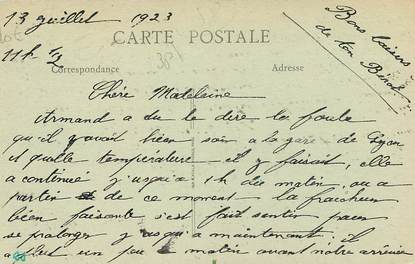 13 juillet 1923
11h 1/2
Bons baisers
de ton Benoit
CARTE POSTALE
Correspondance
Adresse
Chère Madeleine
Armand a du te dire la foule
qu'il y avait hier soir a la gare de Lyon
et quelle temperature il y faisait, elle
a continué jusqu'a 1h du matin ou a
partir de ce moment la fraicheur
bien faisante s'est fait sentir pour
se prolonger jusqu'a maintenant. il
a plut un peu ce matin avant notre arrivée